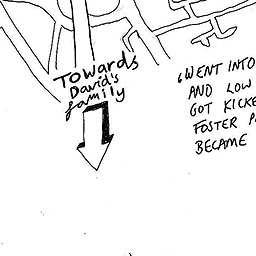 Towards
David's
family
WENT INTO
AND LOW
GOT KICKE
FOSTER P
BECAME